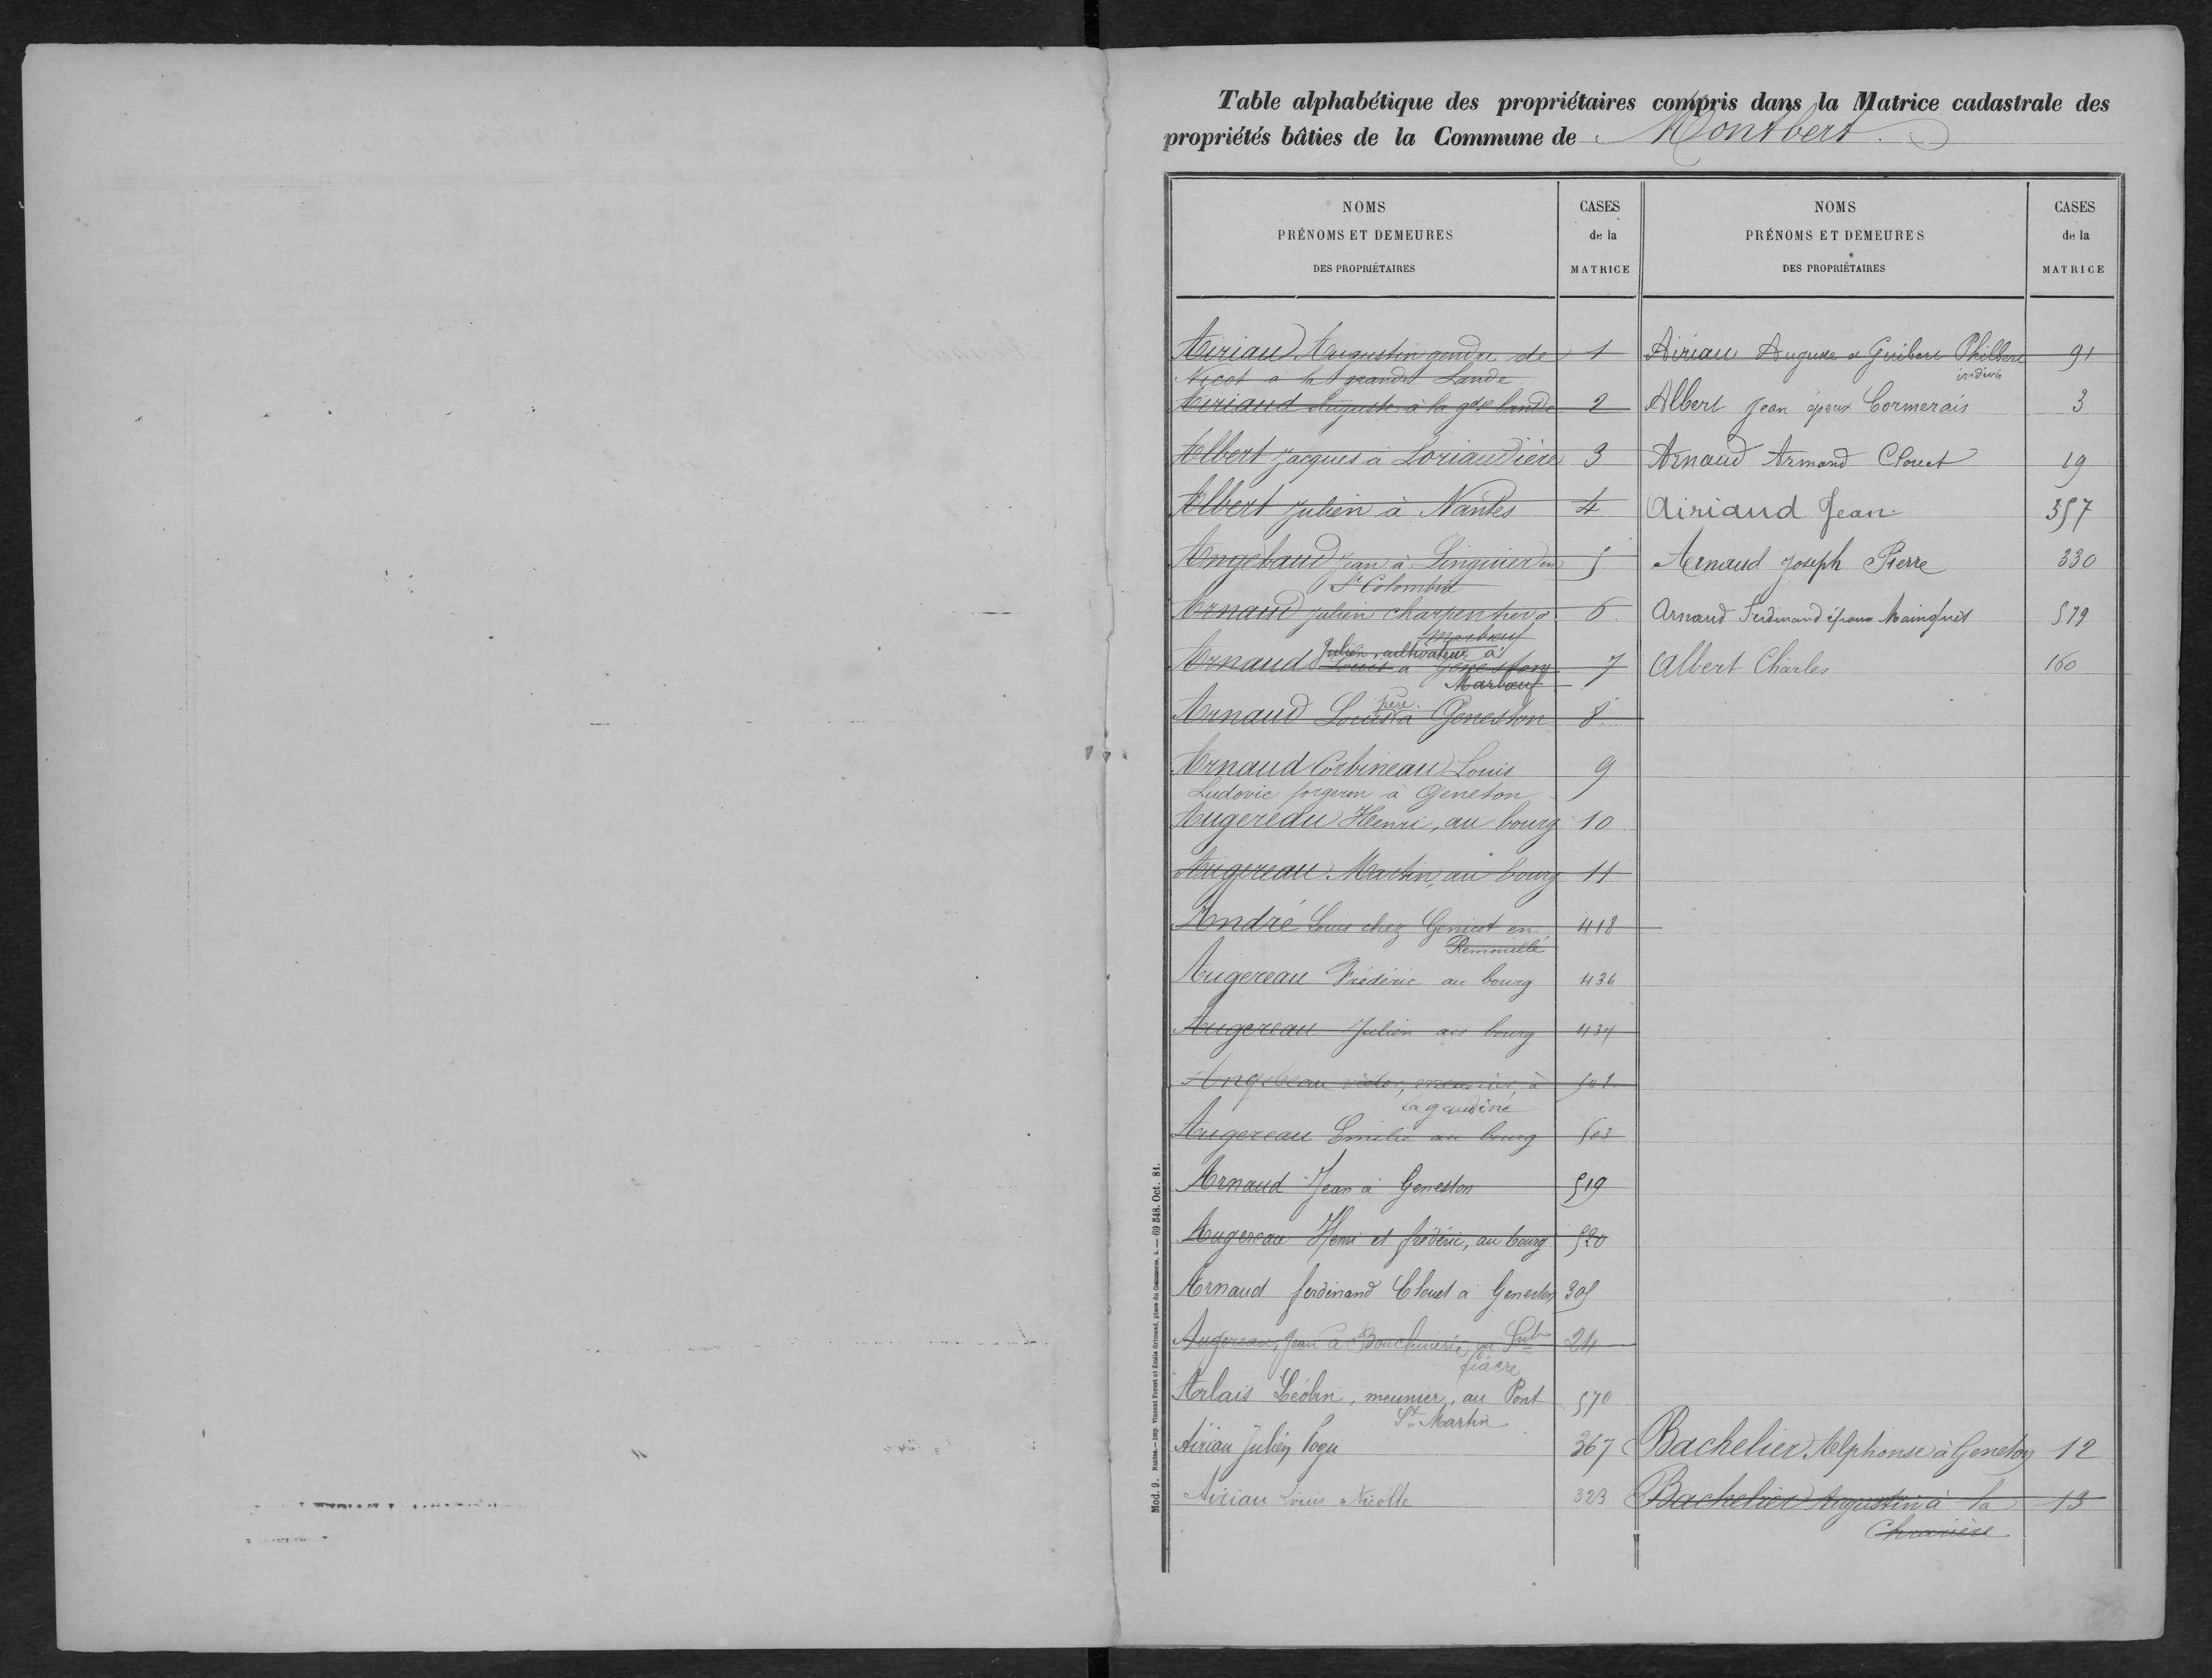 Table alphabétique des propriétaires compris dans la Matrice cadastrale des
propriétés bâties de la Commune de Montbert.
NOMS
PRÉNOMS ET DEMEURES
DES PROPRIÉTAIRES
CASES
de la
MATRICE
Airiau Augustin gendre de 1
Nicot à la grande Lande
Airiaud Auguste à la gde lande 2
Albert Jacques à Loriaudière 3
Albert Julien à Nantes 4
Angebaud Jean à Linguier en 5
St Colombin
Arnaud Julien charpentier à 6
Marbœuf
Julien, cultivateur à
Arnaud Louis à Geneston 7
Marbœuf
Arnaud Louis Père à Geneston 8
Arnaud Corbineau Louis 9
Ludovic forgeron à Geneton
Augereau Henri, au bourg 10
Augereau Martin, au bourg 11
André Louis chez Genicot en 418
Remouillé
Augereau Frédéric au bourg 436
Augereau Julien au bourg 437
Angebeau victor, meunier, à 501
la gaudine
Augereau Emilie au bourg 503
Arnaud Jean à Geneston 519
Augereau Henri et frédéric, au bourg 520
Arnaud ferdinand Clouet à Geneston 305
Augereau, Jean à en St 24
fiacre
Arlais Léobin, meunier, au Pont 570
St Martin
Airiau Julien 367
Airiau Louis Nicolle 323
NOMS
PRÉNOMS ET DEMEURES
DES PROPRIÉTAIRES
CASES
de la
MATRICE
Airiau Auguste & Guibert Philbert 91
indivis
Albert Jean époux Cormerais 3
Arnaud Armand Clouet 19
Airiaud Jean 357
Arnaud Joseph Pierre 330
Arnaud Ferdinand époux Mainguet 579
Albert Charles 160
Bachelier Alphonse à Geneton 12
Bachelier Augustin à la 13
Mod. 9. Nantes.—Imp. Vincent Forest et Émile Grimaud, place du Commerce, 4.—69 548. Oct. 81.